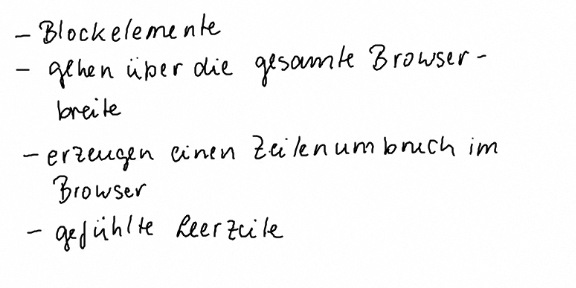 - Blockelemente
- gehen über die gesamte Browser-
breite
- erzeugen einen Zeilenumbruch im
Browser
- gefühlte Leerzeile